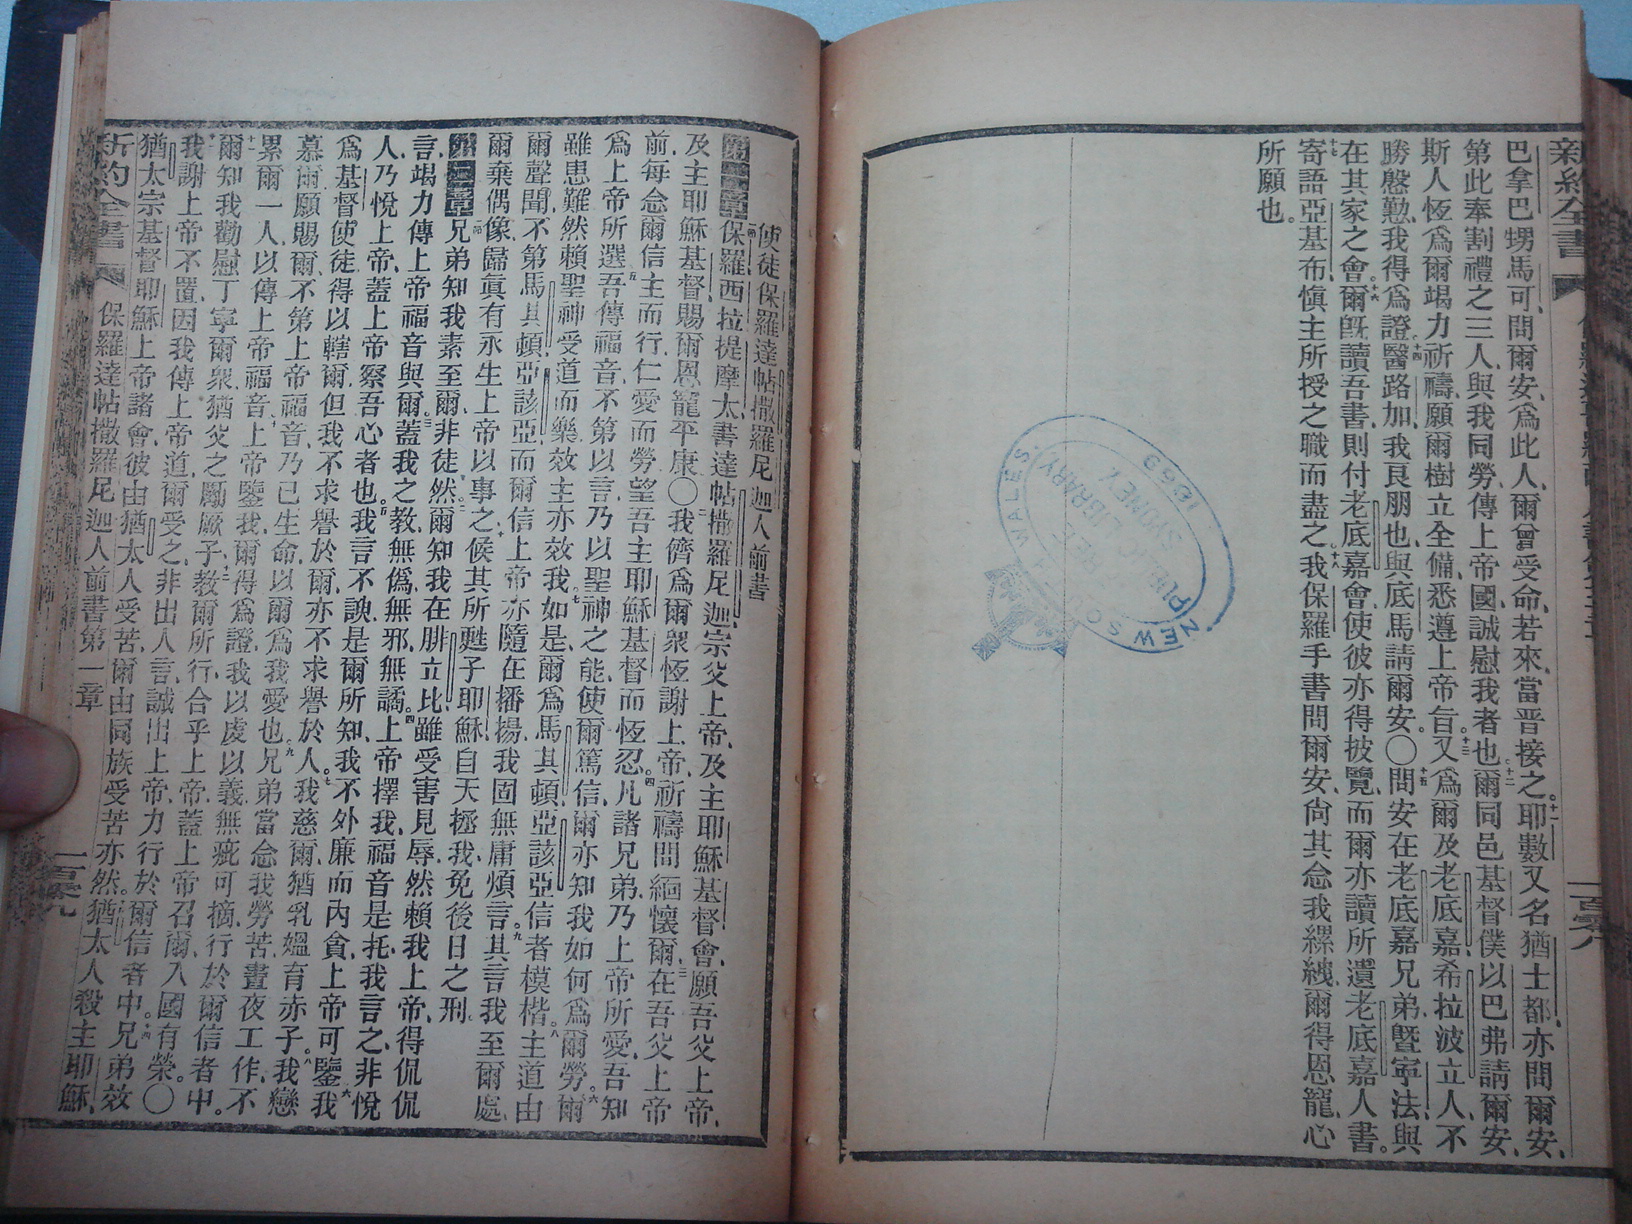 新約全書
巴拿巴甥馬可問爾安爲此人爾曾受命若來當晋接之十一耶數又名猶士都亦問爾安
第此奉割禮之三人與我同勞傳上帝國誠慰我者也十二爾同邑基督僕以巴弗請爾安
斯人恆爲爾竭力祈禱願爾樹立全備悉遵上帝旨十三又爲爾及老底嘉希拉波立人不
勝慇懃我得爲證十四醫路加我良朋也與底馬請爾安〇十五問安在老底嘉兄弟曁寧法與
在其家之會十六爾旣讀吾書則付老底嘉會使彼亦得披覽而爾亦讀所遺老底嘉人書
十七寄語亞基布愼主所授之職而盡之十八我保羅手書問爾安尙其念我縲絏爾得恩寵心
所願也
一百零八
NEW SOUTH WALES
PUBLIC LIBRARY
SYDNEY
使徒保羅達帖撒羅尼迦人前書
第一章一節保羅西拉提摩太書達帖撒羅尼迦宗父上帝及主耶穌基督會願吾父上帝
及主耶穌基督賜爾恩寵平康〇二我儕爲爾衆恆謝上帝祈禱間緬懷爾三在吾父上帝
前每念爾信主而行仁愛而勞望吾主耶穌基督而恆忍四凡諸兄弟乃上帝所愛吾知
爲上帝所選五吾傳福音不第以言乃以聖神之能使爾篤信爾亦知我如何爲爾勞六爾
雖患難然賴聖神受道而樂效主亦效我七如是爾爲馬其頓亞該亞信者模楷八主道由
爾聲聞不第馬其頓亞該亞而爾信上帝亦隨在播揚我固無庸煩言九其言我至爾處
爾棄偶像歸眞有永生上帝以事之十候其所甦子耶穌自天極我免後日之刑
第二章一節兄弟知我素至爾非徒然二爾知我在腓立比雖受害見辱然賴我上帝得侃侃
言竭力傳上帝福音與爾三蓋我之教無僞無邪無譎四上帝擇我福音是托我言之非悅
人乃悅上帝蓋上帝察吾心者也五我言不諛是爾所知我不外廉而內貪上帝可鑒六我
爲基督使徒得以轄爾但我不求譽於爾亦不求譽於人七我慈爾猶乳媼育赤子八我戀
慕爾願賜爾不第上帝福音乃己生命以爾爲我愛也九兄弟當念我勞苦晝夜工作不
累爾一人以傳上帝福音十上帝鑒我爾得爲證我以虔以義無疵可摘行於爾信者中
十一爾知我勸慰丁寧爾衆猶父之勵厥子十二教爾所行合乎上帝蓋上帝召爾入國有榮〇
十三我謝上帝不置因我傳上帝道爾受之非出人言誠出上帝力行於爾信者中十四兄弟效
猶太宗基督耶穌上帝諸會彼由猶太人受苦爾由同族受苦亦然十五猶太人殺主耶穌
新約全書
保羅達帖撒羅尼迦人前書第一章
一百零九